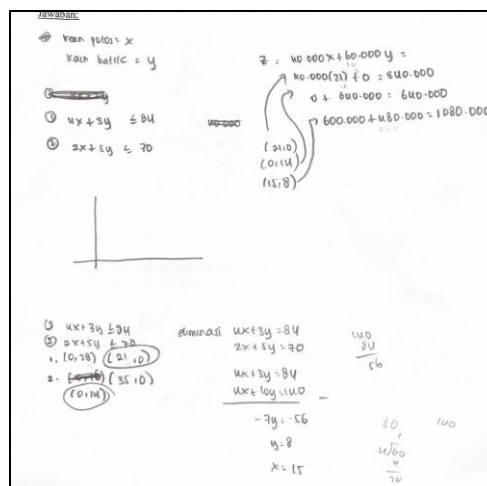 Jawaban:
Kain polos = x
Kain batik = y
① 4x + 3y ≤ 84
② 2x + 5y ≤ 70
40.000
z = 40.000x + 60.000y =
40.000(21) + 0 = 840.000
0 + 840.000 = 840.000
600.000 + 480.000 = 1080.000
(21,0)
(0,14)
(15,8)
① 4x + 3y ≤ 84
② 2x + 5y ≤ 70
1. (0,28) (21,0)
2. (0,16) (35,0)
(0,14)
eliminasi 4x + 3y = 84
2x + 5y = 70
4x + 3y = 84
4x + 10y = 140
-7y = -56
y = 8
x = 15
140
84
56